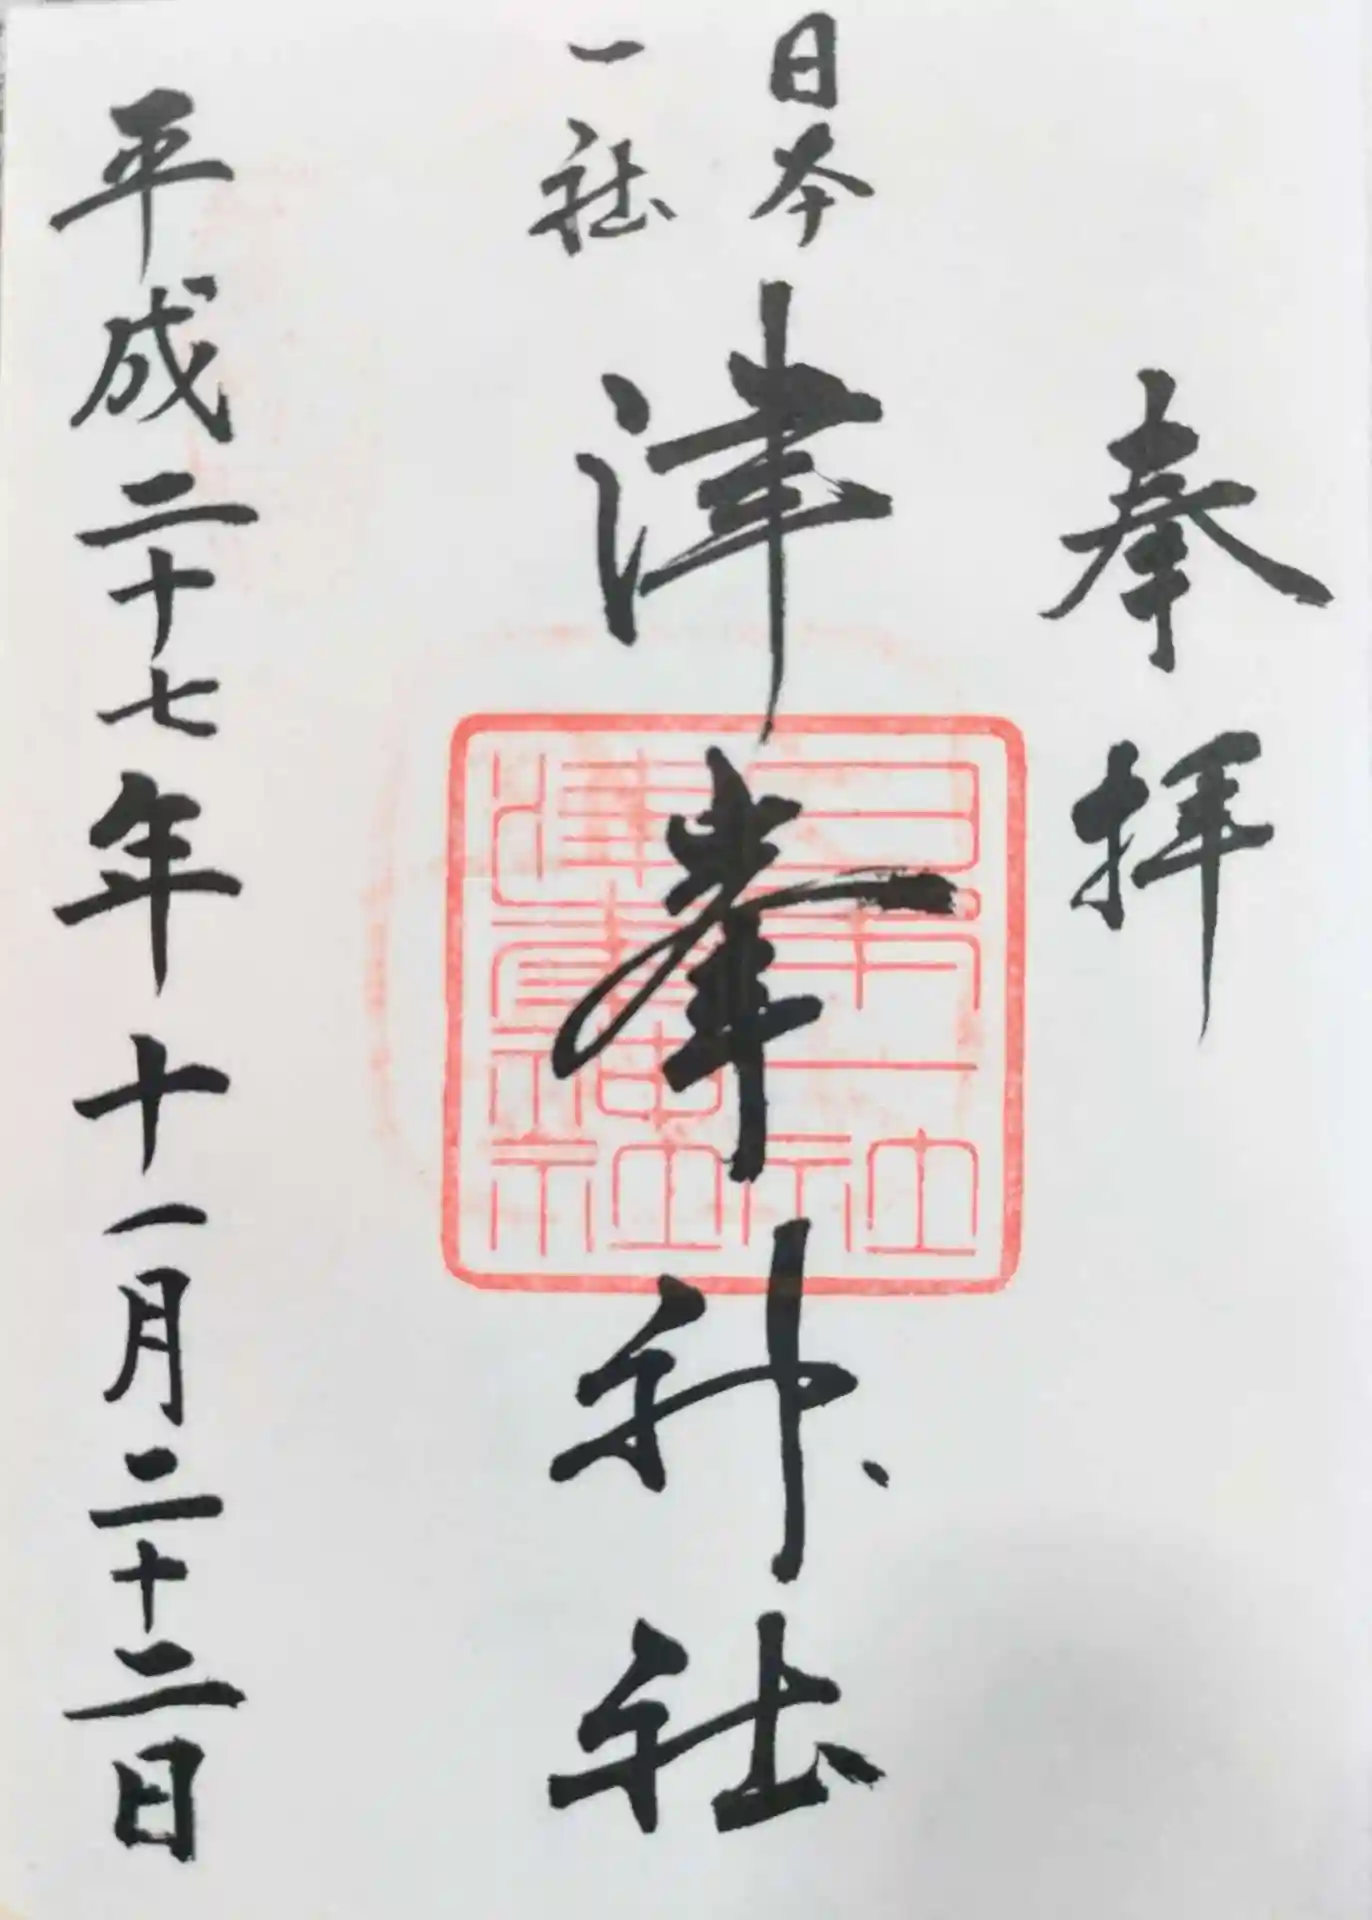 奉拝
日本
一社
津峯神社
平成二十七年十一月二十二日
日本一社
津峯神社